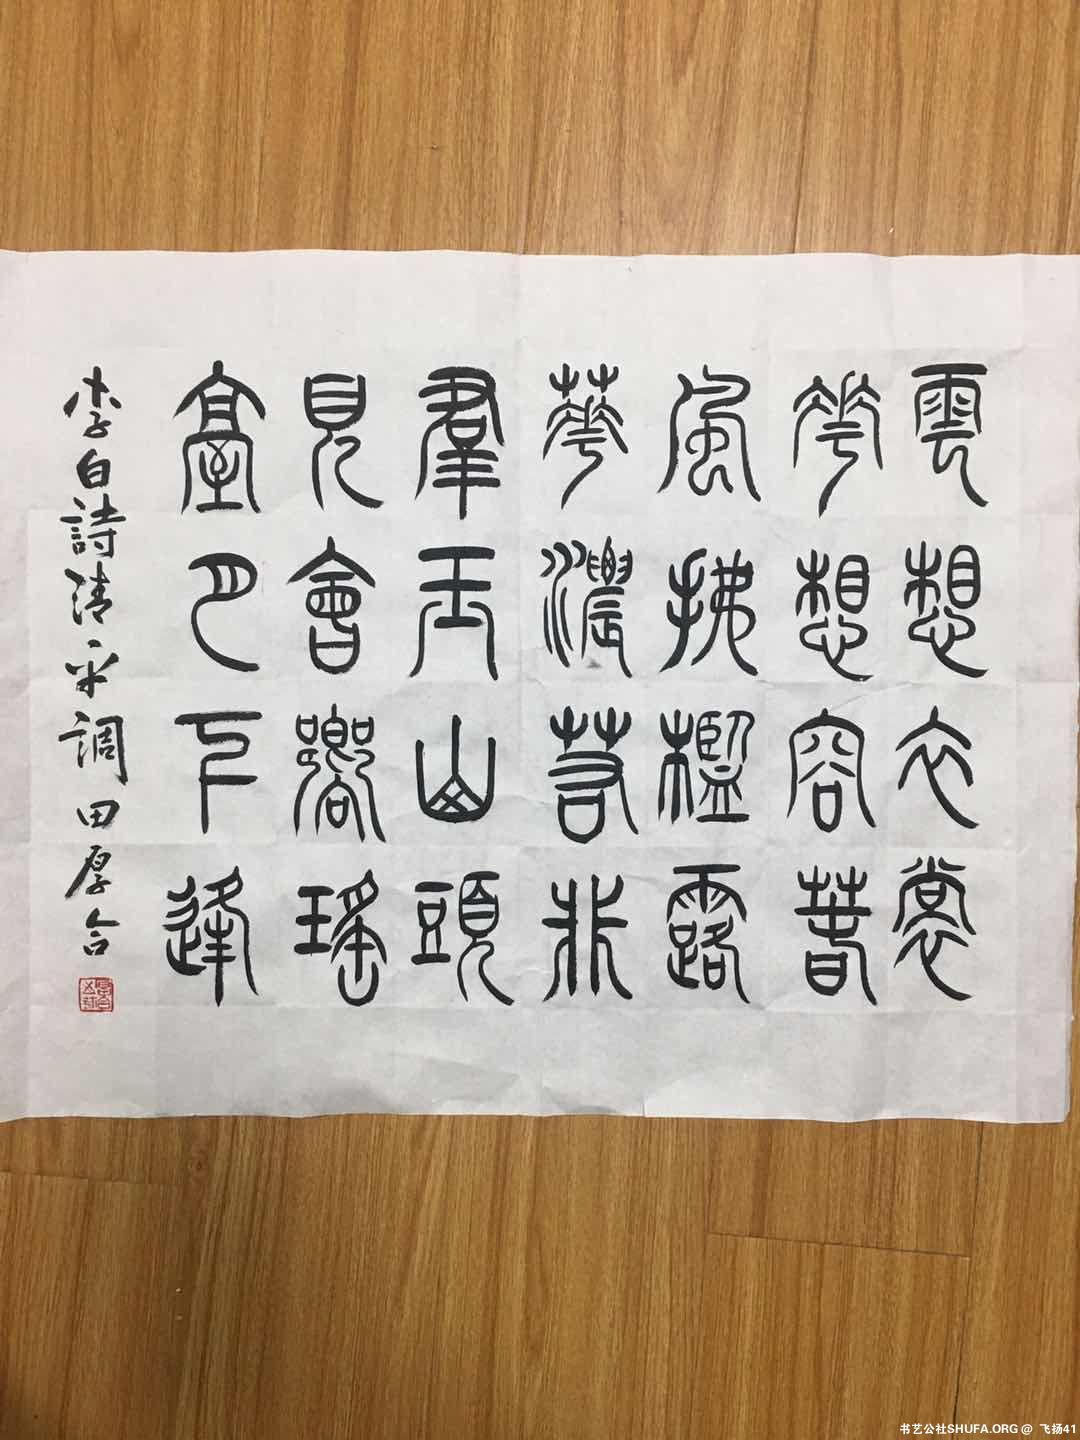 雲想衣裳
花想容春
風拂檻露
華濃若非
羣玉山頭
見會嚮瑤
臺月下逢
李白詩清平調 田厚合
书艺公社SHUFA.ORG @ 飞扬41